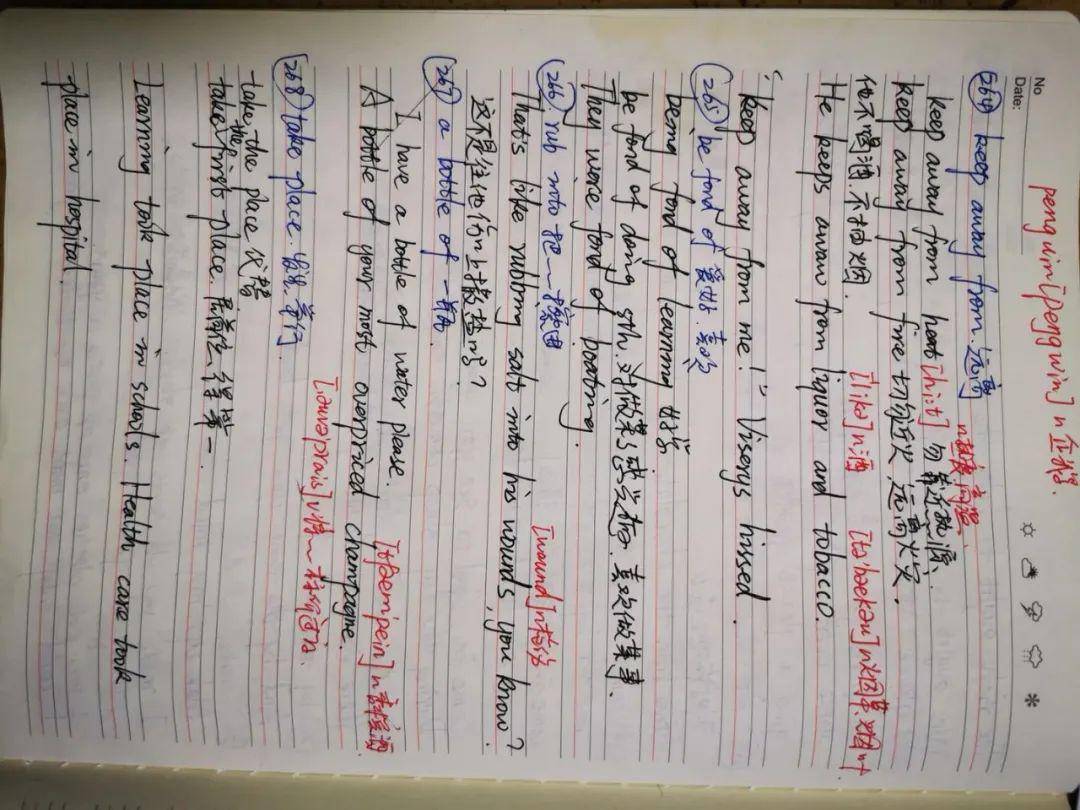 No
Date:
penguin [peŋgwin] n 企鹅.
(264) keep away from. 远离
n 热度 高温.
keep away from heat [hi:t] 勿靠近热源.
keep away from fire 切勿近火 远离火灾.
他不喝酒.不抽烟. [likə] n 酒 [tə'bækəu] n 烟草.烟叶
He keeps away from liquor and tobacco.
"keep away from me!" Viserys hissed.
(265) be fond of 爱好.喜欢
being fond of learning 好学
be fond of doing sth. 对做某事感兴趣. 喜欢做某事.
They were fond of boating.
(266) rub into 把…擦进 [wu:nd] n 枪伤
That's like rubbing salt into his wounds, you know?
这不是往他伤口上撒盐吗?
(267) a bottle of 一瓶
I have a bottle of water please. [ʃæmpein] n 香槟酒
A bottle of your most overpriced champagne.
(268) take place. 发生.举行. [əuvəprais]
take the place 代替
take the first place. 居首位
Learning took place in schools. Health care took
place in hospital.